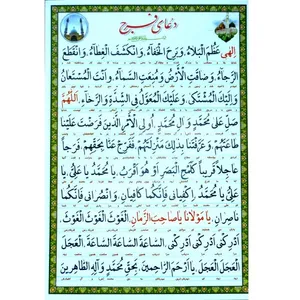 دعای فرج
اِلٰهِی عَظُمَ الْبَلَاءُ، وَبَرِحَ الْخَفَاءُ، وَانْكَشَفَ الْغِطَاءُ، وَانْقَطَعَ
الرَّجَاءُ، وَضَاقَتِ الْأَرْضُ، وَمُنِعَتِ السَّمَاءُ، وَأَنْتَ الْمُسْتَعَانُ
وَإِلَيْكَ الْمُشْتَكىٰ، وَعَلَيْكَ الْمُعَوَّلُ فِی الشِّدَّةِ وَالرَّخَاءِ، اَللّٰهُمَّ
صَلِّ عَلیٰ مُحَمَّدٍ وَآلِ مُحَمَّدٍ، اُولِی الْأَمْرِ الَّذِينَ فَرَضْتَ عَلَيْنَا
طَاعَتَهُمْ، وَعَرَّفْتَنَا بِذٰلِكَ مَنْزِلَتَهُمْ، فَفَرِّجْ عَنَّا بِحَقِّهِمْ، فَرَجًا
عَاجِلًا قَرِيبًا كَلَمْحِ الْبَصَرِ أَوْ هُوَ أَقْرَبُ، يَا مُحَمَّدُ يَا عَلِیُّ، يَا
عَلِیُّ يَا مُحَمَّدُ، اِكْفِيَانِی فَإِنَّكُمَا كَافِيَانِ، وَانْصُرَانِی فَإِنَّكُمَا
نَاصِرَانِ، يَا مَوْلَانَا يَا صَاحِبَ الزَّمَانِ، الْغَوْثَ، الْغَوْثَ، الْغَوْثَ،
أَدْرِكْنِی، أَدْرِكْنِی، أَدْرِكْنِی، السَّاعَةَ، السَّاعَةَ، السَّاعَةَ، الْعَجَلَ،
الْعَجَلَ، الْعَجَلَ، يَا أَرْحَمَ الرَّاحِمِينَ، بِحَقِّ مُحَمَّدٍ وَآلِهِ الطَّاهِرِينَ